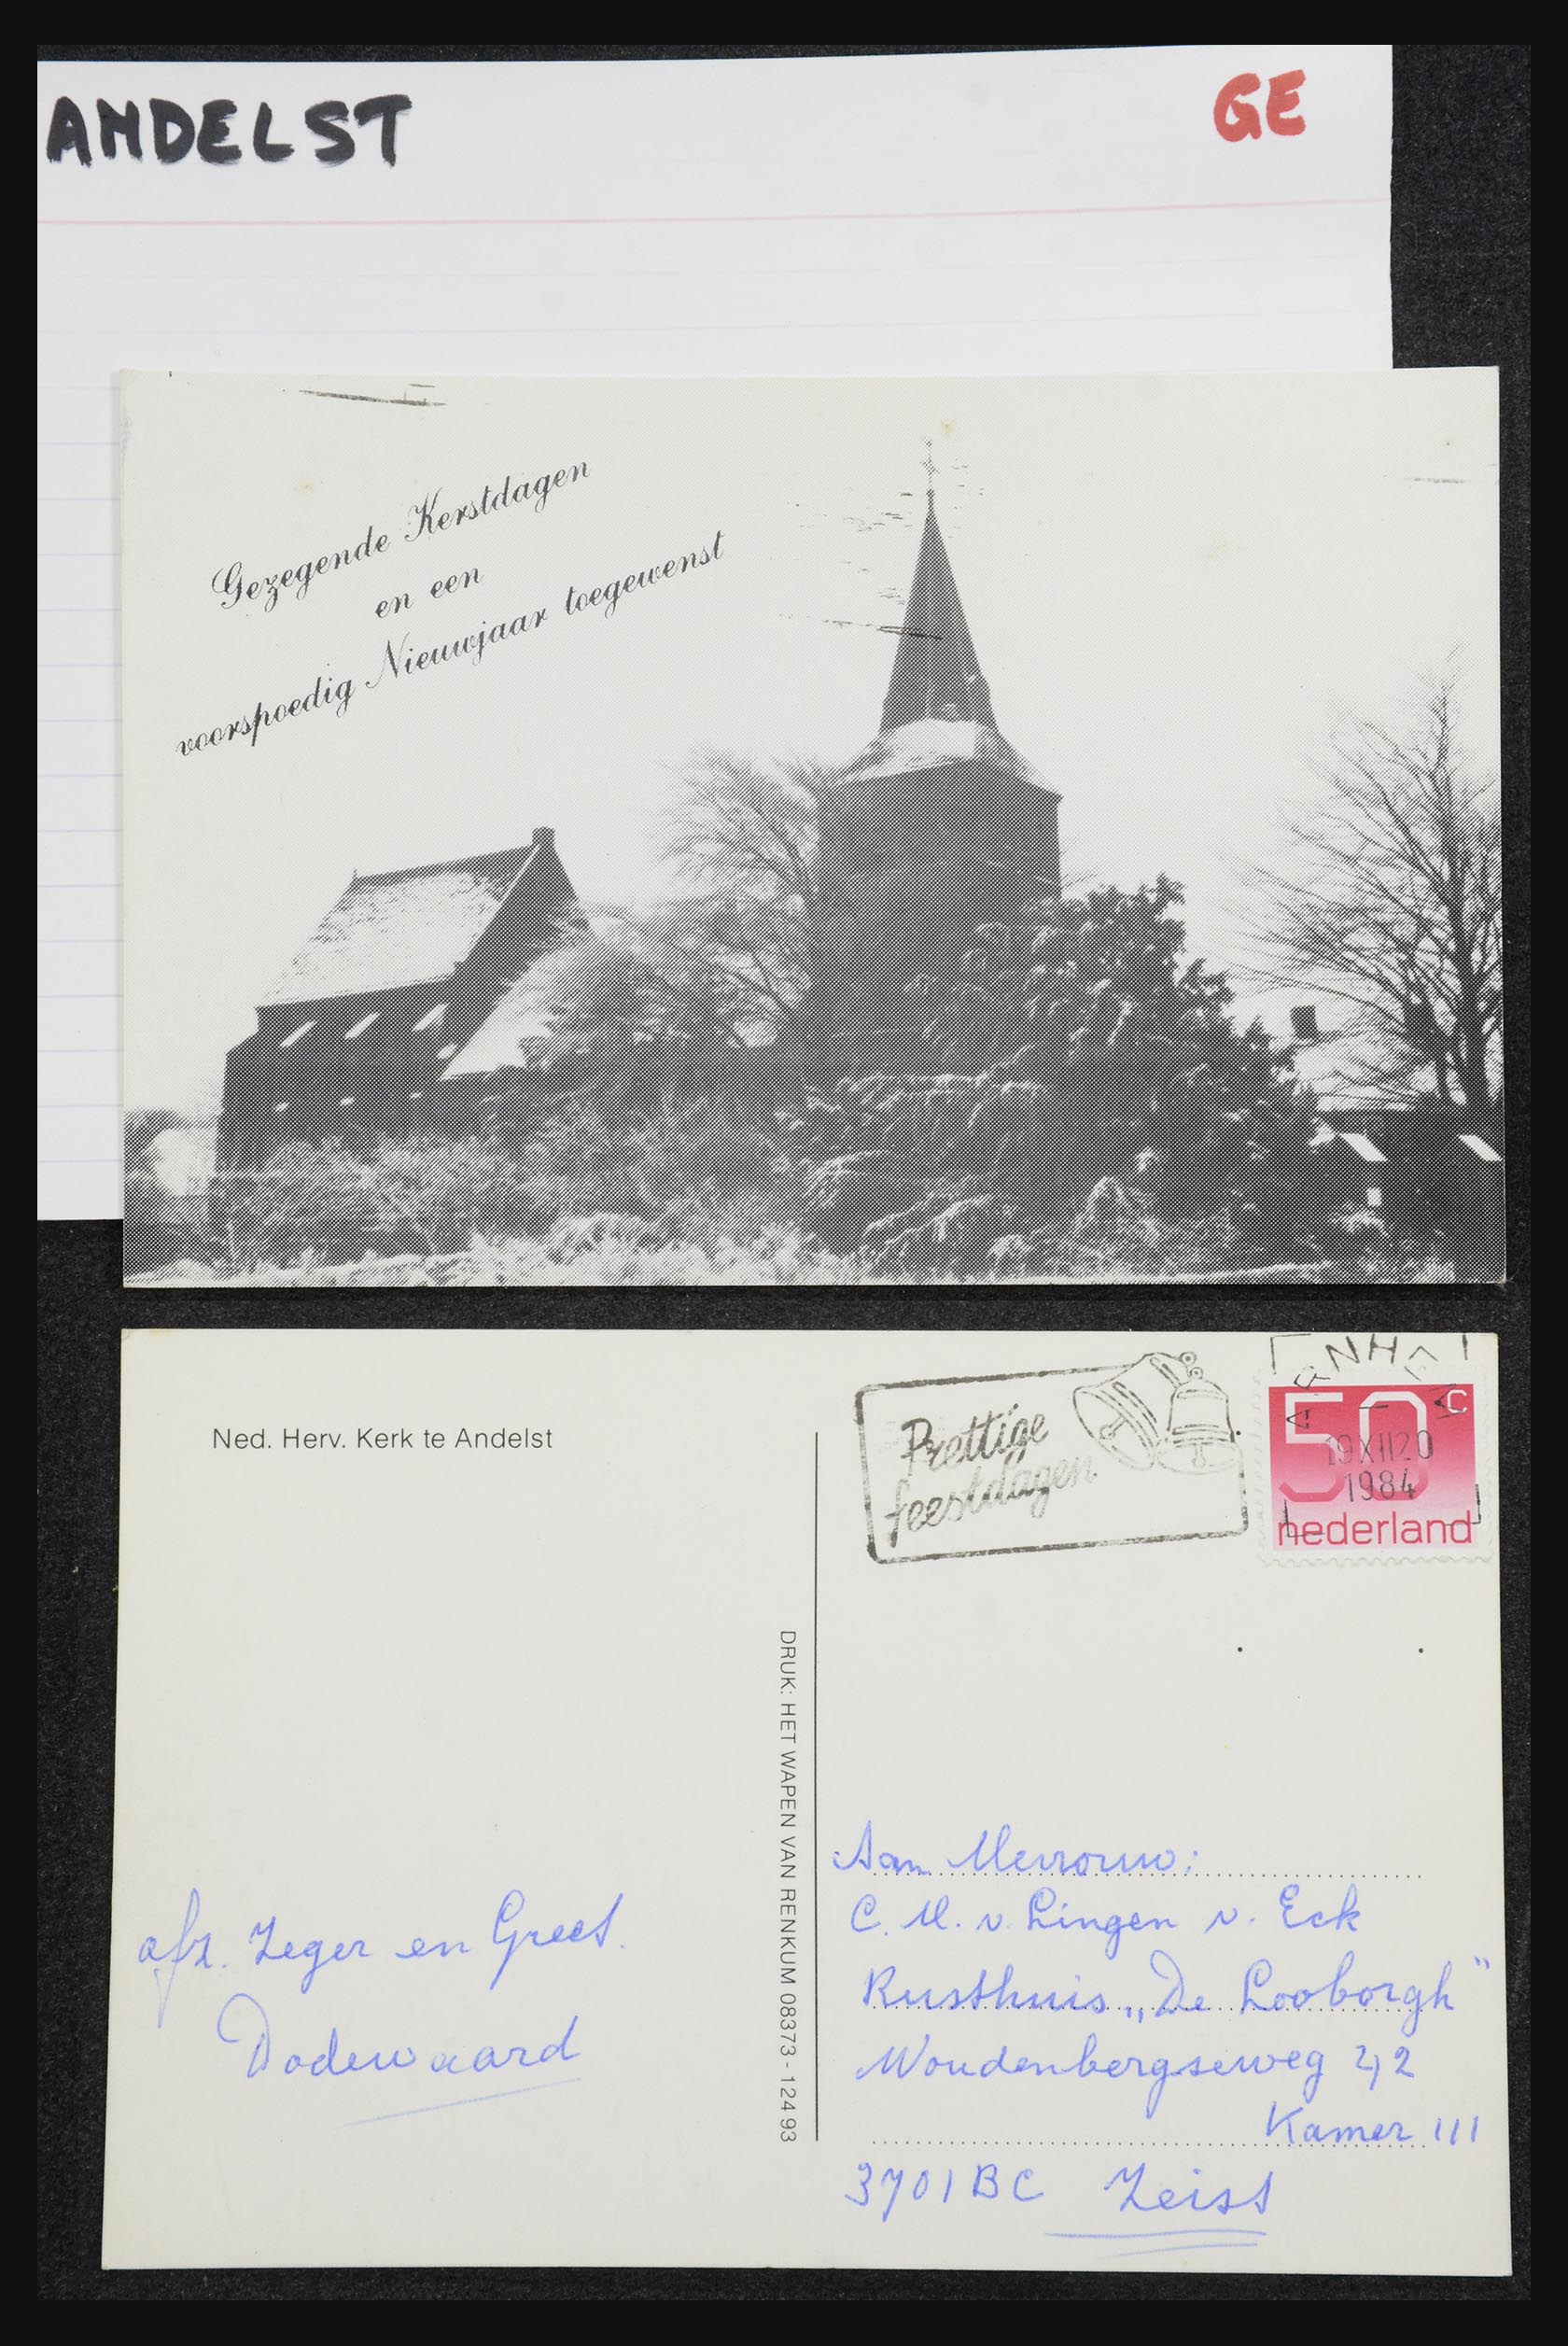 ANDELST
GE
Gezegende Kerstdagen
en een
voorspoedig Nieuwjaar toegewenst
Ned. Herv. Kerk te Andelst
Prettige
feestdagen
ARNHEM
19 XII 20
1984
50 c
nederland
DRUK: HET WAPEN VAN RENKUM 08373-12493
afz. Zeger en Greet.
Dodewaard
Aan Mevrouw:
C. M. v. Lingen v. Eck
Rusthuis „De Looborgh"
Woudenbergseweg 42
Kamer 111
3701 BC Zeist